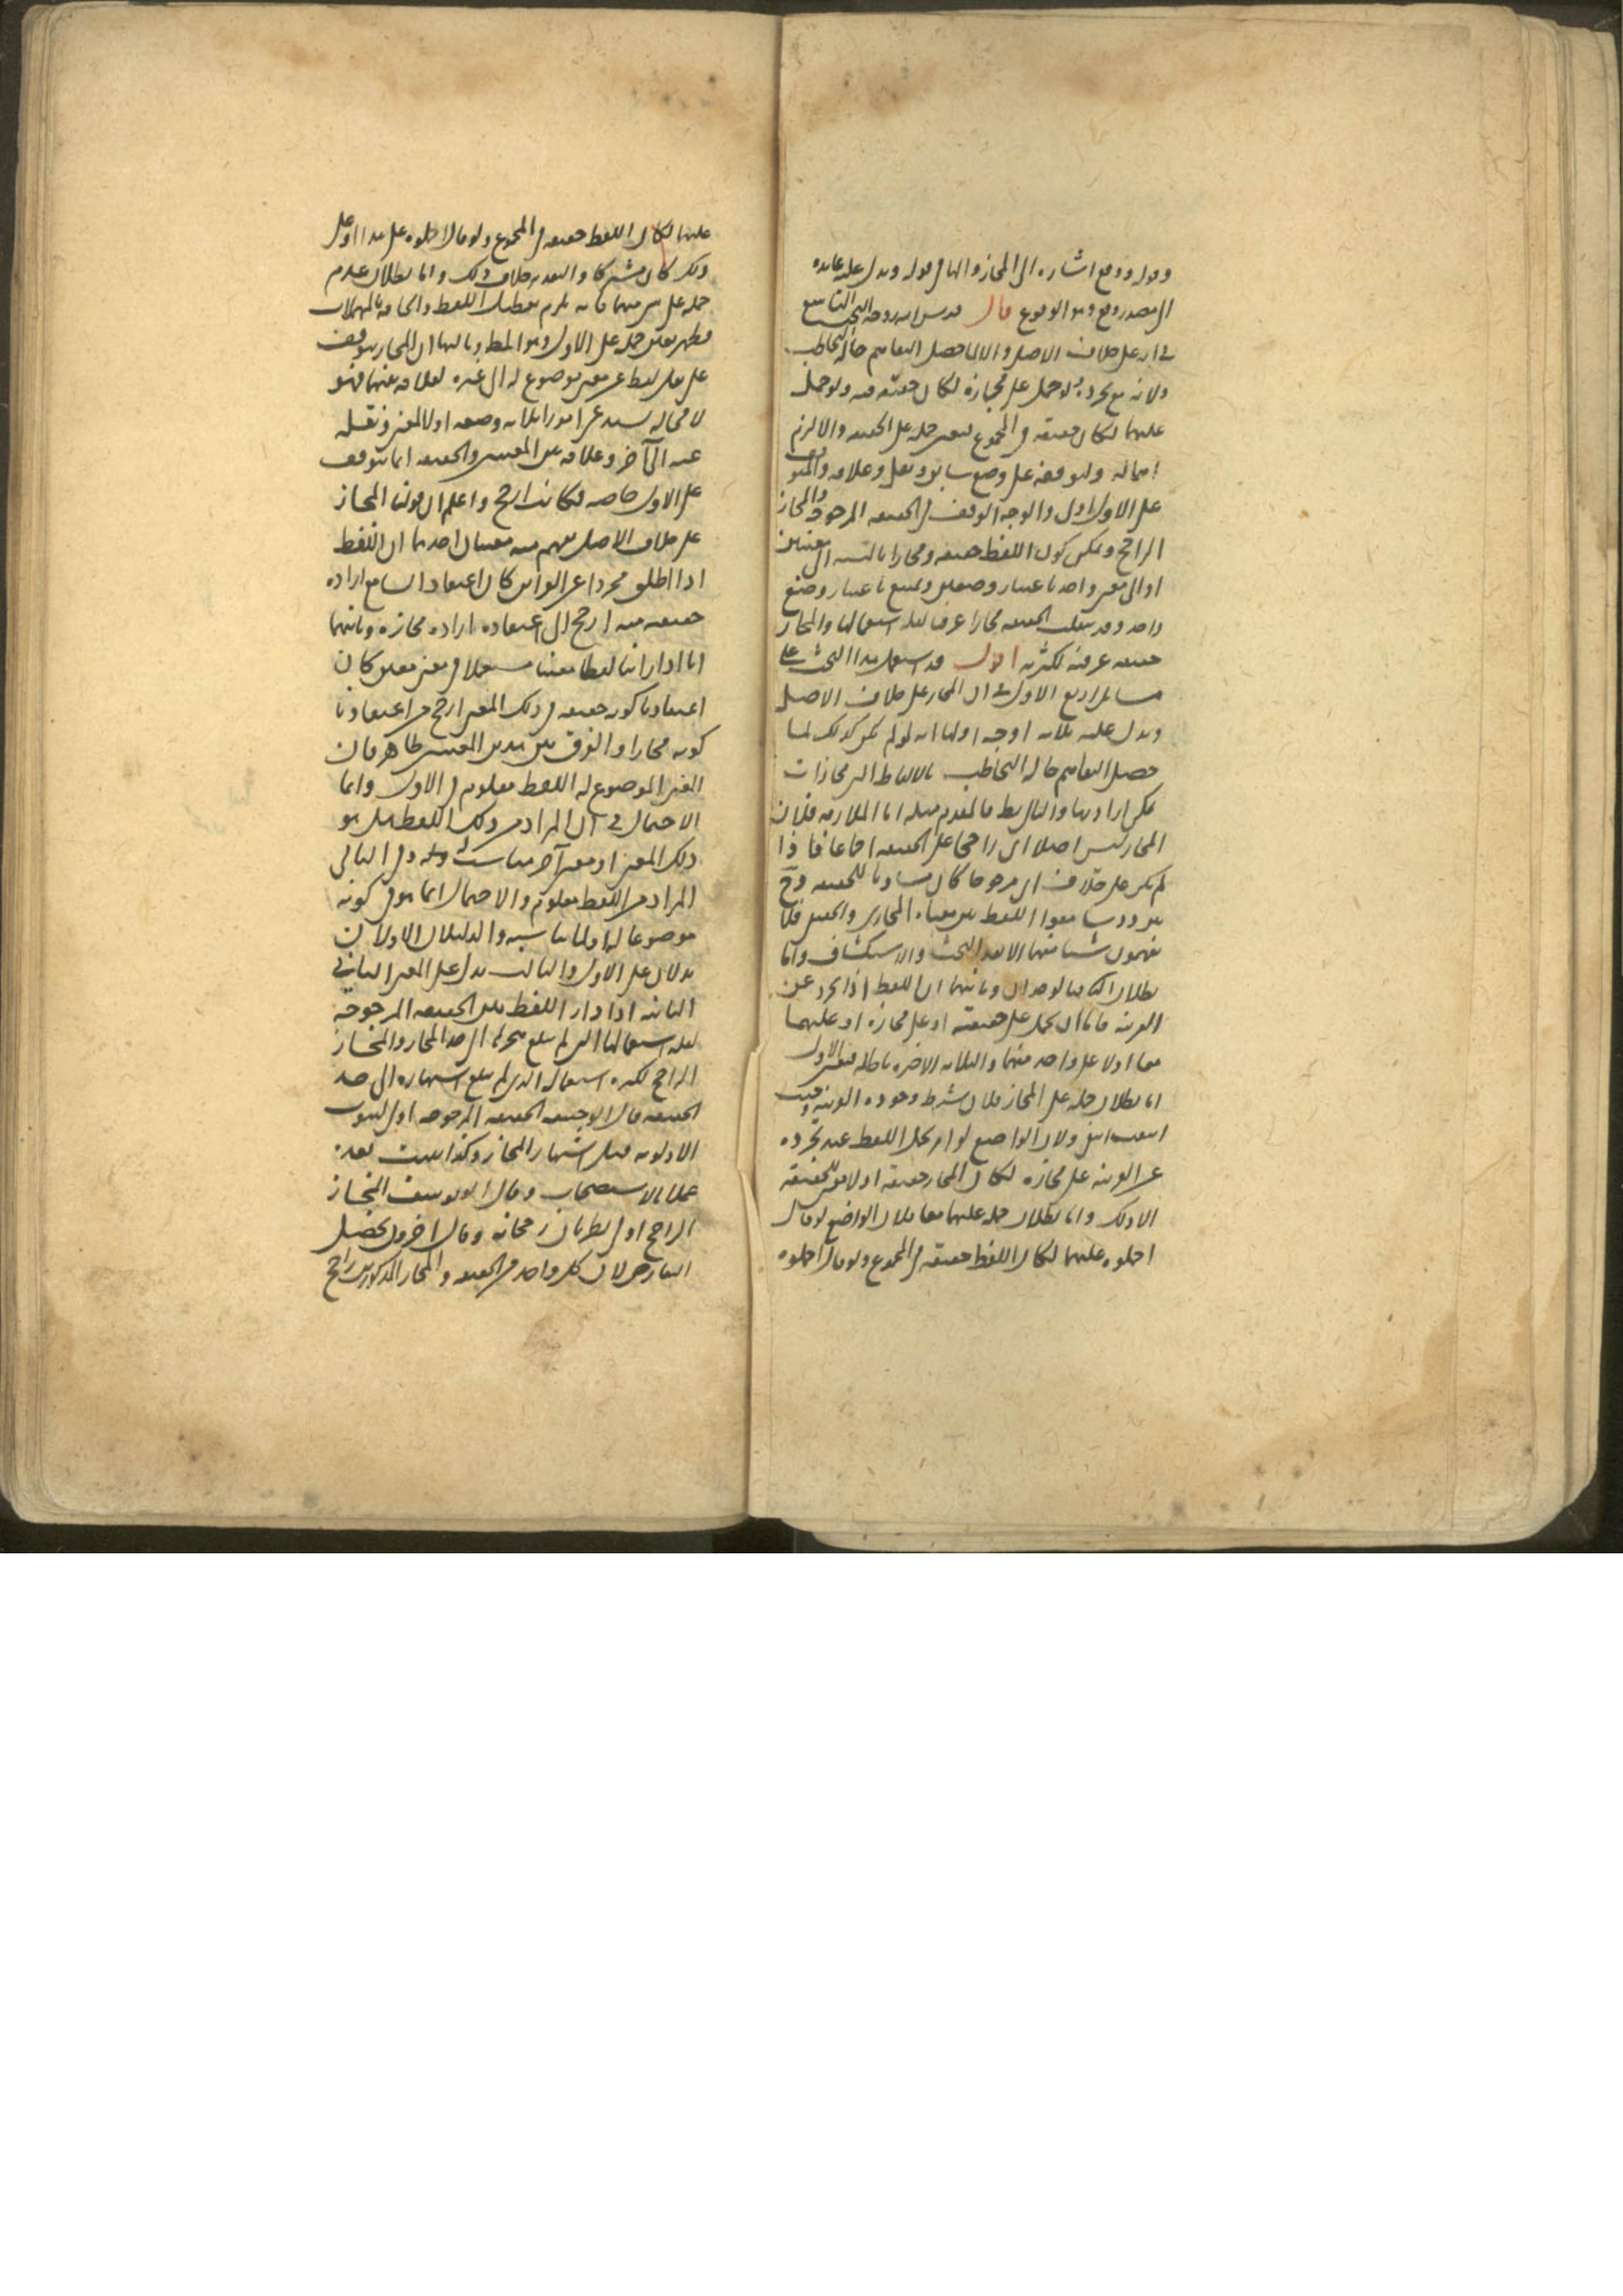 وقوله ووقع اشاره الى المجاز والها في قوله ويدل عليه عايده
الى مصدر وقع وهو الوقوع قال قدس الله روحه البحث التاسع
في انه على خلاف الاصل والا لما حصل التفاهم حالة التخاطب
ولانه مع تجرده لو حمل على مجازه لكان حقيقة فيه ولو حمل
عليهما لكان حقيقه في المجموع فيتعين حمله على الحقيقه والا لزم
اهماله ولتوقفه على وضع سابق ونقل وعلاقه والمتوقف
على الاول اولى والوجه التوقف في الحقيقه المرجوحه والمجاز
الراجح ويمكن كون اللفظ حقيقه ومجازا بالنسبه الى معنيين
او الى معنى واحد باعتبار وضعين ويمتنع باعتبار وضع
واحد وقد تنقلب الحقيقه مجازا عرفيا لقله استعمالها والمجاز
حقيقه عرفيه لكثرته اقول قد اشتمل هذا البحث على
مسايل اربع الاولى في ان المجاز على خلاف الاصل
ويدل عليه ثلاثه اوجه اولها انه لو لم يكن كذلك لما
حصل التفاهم حاله التخاطب بالالفاظ التي مجازات
يمكن ارادتها والتالي بط فالمقدم مثله اما الملازمه فلان
المجاز ليس اصلا اي راجحا على الحقيقه اجماعا فاذا
لم يكن على خلاف اي مرجوحا كان مساويا للحقيقه وح
يتردد سامعوا اللفظ بين معناه المجازي والحقيقي فلا
يفهمون شيئا منهما الا بعد البحث والاستكشاف واما
بطلان التالي فبالوجدان وثانيهما ان اللفظ اذا تجرد عن
القرينه فاما ان يحمل على حقيقته او على مجازه او عليهما
معا او لا على واحد منهما والثلاثه الاخيره باطله فتعين الاول
اما بطلان حمله على المجاز فلان شرطه وجود القرينه وحيث
انتفت انتفى ولان الواضع لو امر بحمل اللفظ عند تجرده
عن القرينه على مجازه لكان المجاز حقيقه اذ لا معنى للحقيقه
الا ذلك واما بطلان حمله عليهما معا فلان الواضع لو قال
احملوه عليهما لكان اللفظ حقيقه في المجموع ولو قال احملوه
عليهما لكان اللفظ حقيقه في المجموع ولو قال احملوه على هذا او على
ذلك كان مشتركا والتقدير خلاف ذلك واما بطلان عدم
حمله على شي منهما فانه يلزم تعطيل اللفظ والحاقه بالمهملات
فظهر تعين حمله على الاول وهو المط وثالثها ان المجاز يتوقف
على نقل لفظ عن معنى موضوع له الى غيره لعلاقه بينهما فهو
لا محاله يستدعي امورا ثلاثه وضعه اولا لمعنى ونقله
عنه الى آخر وعلاقه بين المعنيين والحقيقه انما تتوقف
على الاول خاصه فكانت ارجح واعلم ان قولنا المجاز
على خلاف الاصل يفهم منه معنيان احدهما ان اللفظ
اذا اطلق مجردا عن القراين كان اعتقاد السامع اراده
حقيقته منه ارجح الى اعتقاده اراده مجازه وثانيهما
انا اذا راينا لفظا معينا مستعملا في معنى معين كان
اعتقادنا كونه حقيقه في ذلك المعنى ارجح من اعتقادنا
كونه مجازا والفرق بين هذين المعنيين ظاهر فان
المعنى الموضوع له اللفظ معلوم في الاول وانما
الاحتمال في ان المراد من ذلك اللفظ هل هو
ذلك المعنى او معنى آخر مناسب له وفي الثاني
المراد من اللفظ معلوم والاحتمال انما هو في كونه
موضوعا له او لما يناسبه والدليلان الاولان
يدلان على الاول والثالث يدل على المعنى الثاني
الثانيه اذا دار اللفظ بين الحقيقه المرجوحه
لقله استعمالها التي لم يبلغ هجرها الى حد المجاز والمجاز
الراجح لكثره استعماله الذي لم يبلغ اشتهاره الى حد
الحقيقه قال ابو حنيفه الحقيقه المرجوحه اولى لثبوت
الاولويه قبل اشتهار المجاز وكذا يثبت بعده
عملا بالاستصحاب وقال ابو يوسف المجاز
الراجح اولى لطريان رجحانه وقال اخرون يحصل
التعارض لان كل واحد من الحقيقه والمجاز المذكورين راجح